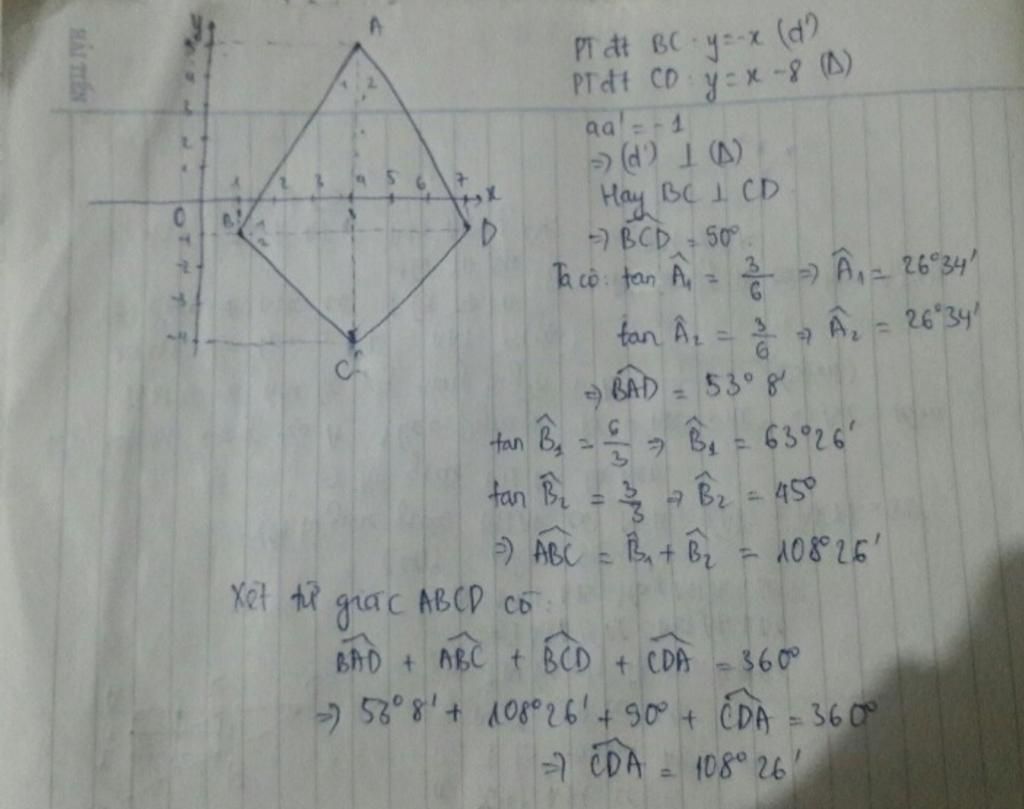 HẢI TIẾN
y
A
1 2
5
4
3
2
1
1 2 3 4 5 6 7 x
O
B 1 2
D
-1
-2
-3
-4
C
PT đt BC: y=-x (d')
PT đt CD: y=x-8 (Δ)
aa' = -1
=> (d') ⊥ (Δ)
Hay BC ⊥ CD
=> \widehat{BCD} = 90°
Ta có: tan Â₁ = 3/6 => Â₁ = 26°34'
tan Â₂ = 3/6 => Â₂ = 26°34'
=> \widehat{BAD} = 53°8'
tan B̂₁ = 6/3 => B̂₁ = 63°26'
tan B̂₂ = 3/3 => B̂₂ = 45°
=> \widehat{ABC} = B̂₁ + B̂₂ = 108°26'
Xét tứ giác ABCD có:
\widehat{BAD} + \widehat{ABC} + \widehat{BCD} + \widehat{CDA} = 360°
=> 53°8' + 108°26' + 90° + \widehat{CDA} = 360°
=> \widehat{CDA} = 108°26'